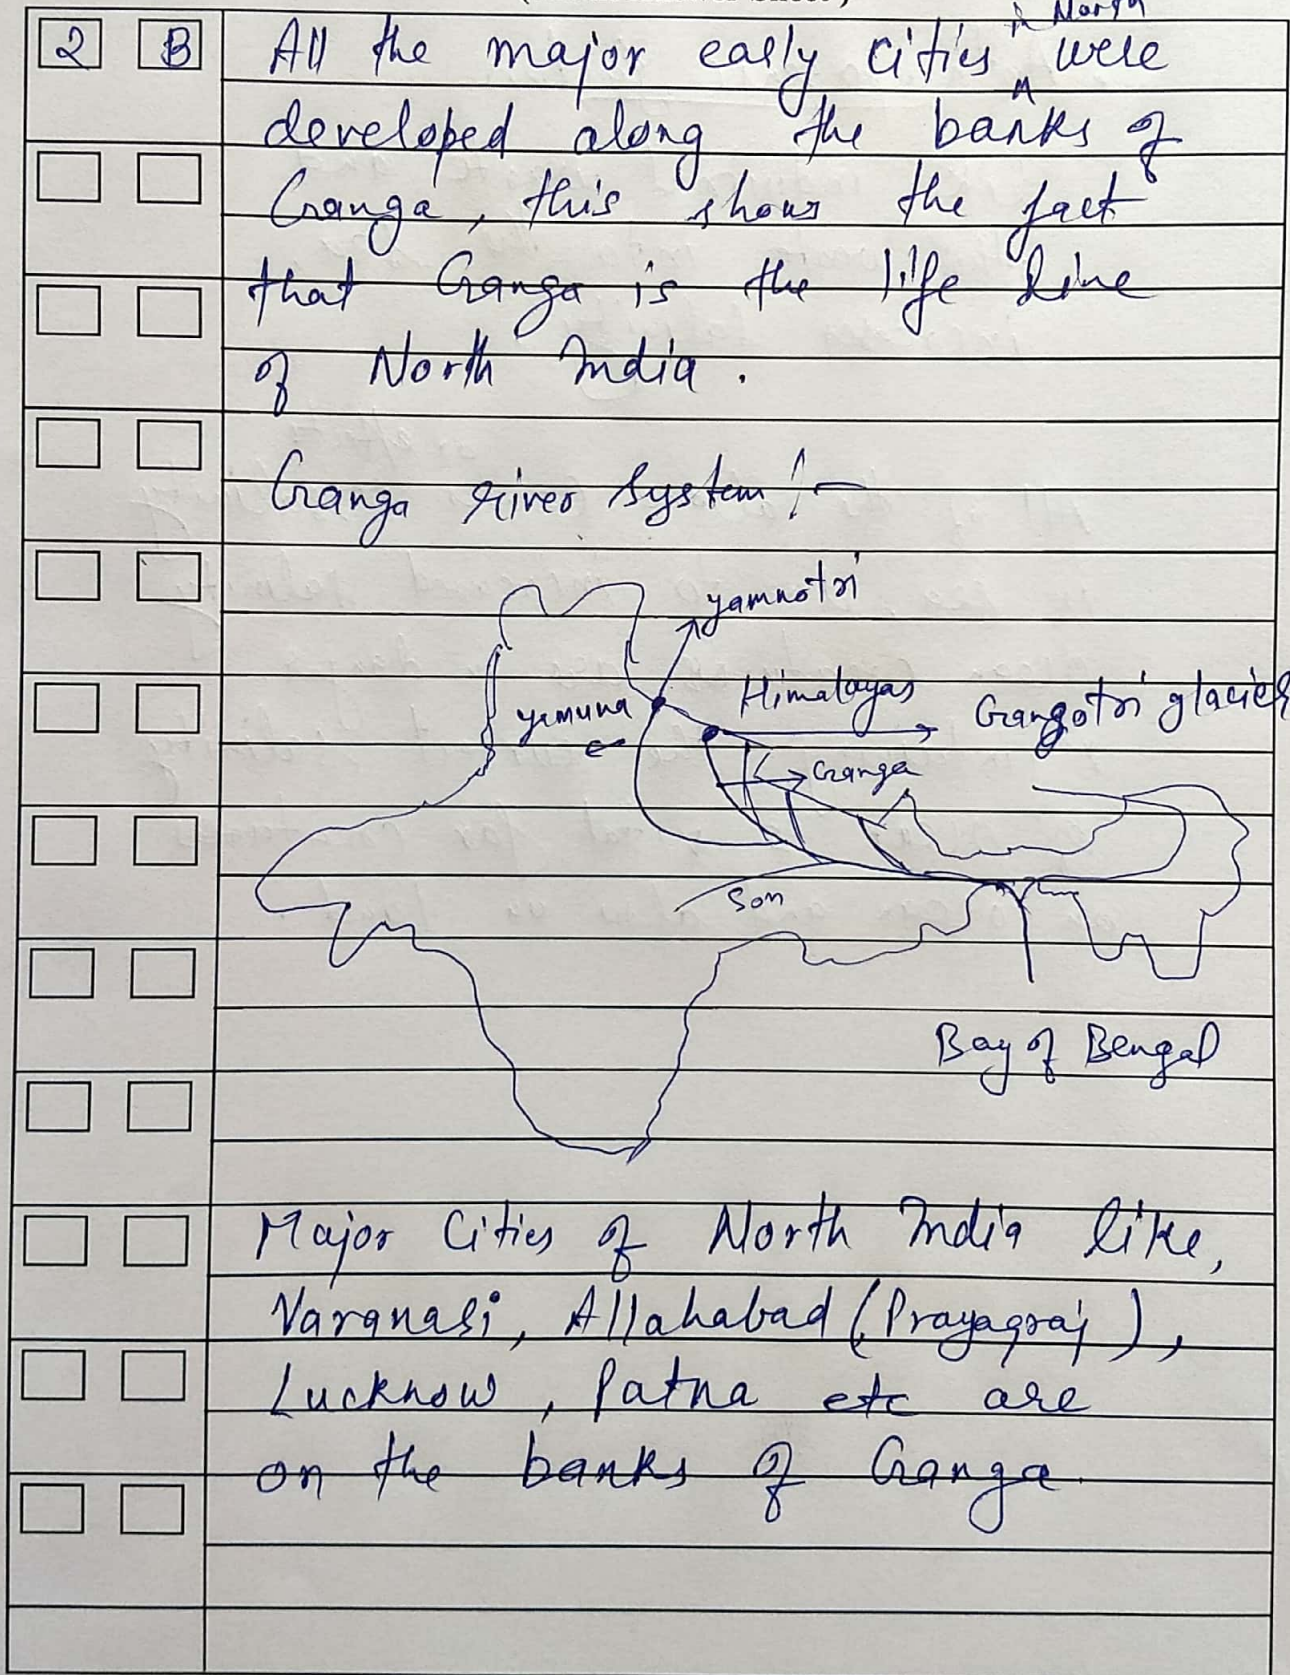 2 B
in North
All the major early cities were
developed along the banks of
Ganga, this shows the fact
that Ganga is the life line
of North India.
Ganga river System :-
yamnotri
Himalayas
Gangotri glacier
yamuna
Ganga
Son
Bay of Bengal
Major Cities of North India like,
Varanasi, Allahabad (Prayagraj),
Lucknow, Patna etc are
on the banks of Ganga.